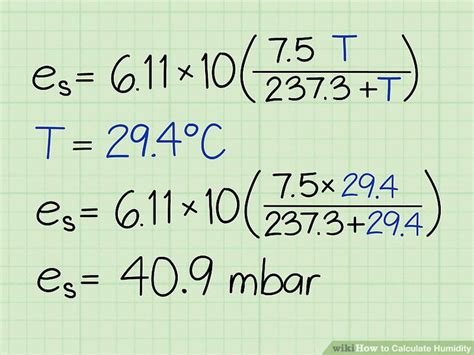 eₛ = 6.11×10(7.5 T / 237.3 + T)
T = 29.4°C
eₛ = 6.11×10(7.5× 29.4 / 237.3+29.4)
eₛ = 40.9 mbar
wikiHow to Calculate Humidity